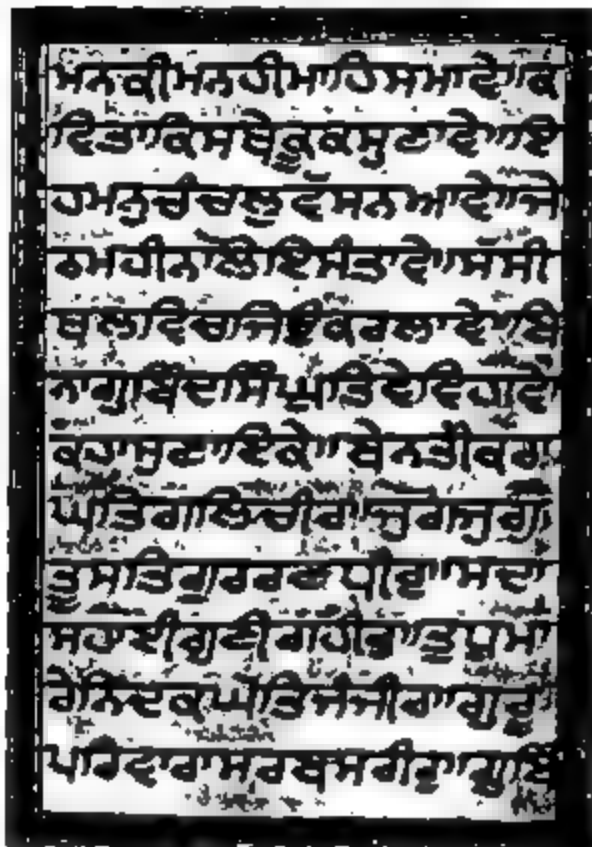 ਮਨਕੀਮਨਹੀਮਾਹਿਸਮਾਵੇ॥ਕ
ਵਿਤਾਕਿਸਥੇਕੂਕਸੁਣਾਵੇ॥ਇ
ਹਮਨੁਚੰਚਲੁਵੱਸਨਆਵੇ॥ਜੇ
ਠਮਹੀਨਾਲੋਇਸੰਤਾਵੇ॥ਸੱਸੀ
ਥਲਵਿਚਜਿਉਕਰਲਾਵੇ॥ਬਿ
ਨਾਗੁਬਿੰਦਸਿੰਘਾਤਿਵੇਵਿਹਾਵੇ
ਕਹਾਸੁਣਾਇਕੇ॥ਬੇਨਤੀਕਰਾ
ਘਤਿਗਲਿਚੀਰਾ॥ਜੁਗਾਜੁਗ
ਤੂਸਤਿਗੁਰ ਪੀਰਾ॥ਸਦਾ
ਸਹਾਈਗੁਣੀਗਹੀਰਾ॥ਤੂਮਾ
ਰੇਨਿੰਦਕਘਤਿਜੰਜੀਰਾ॥ਗੁਰੂ
ਪਰਿਵਾਰਾਸਰਬਸਰੀਰਾ॥ਗੁਬਿੰ